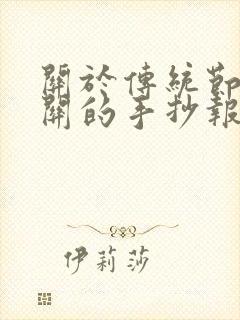 關於傳統節
開的手抄報
伊莉莎